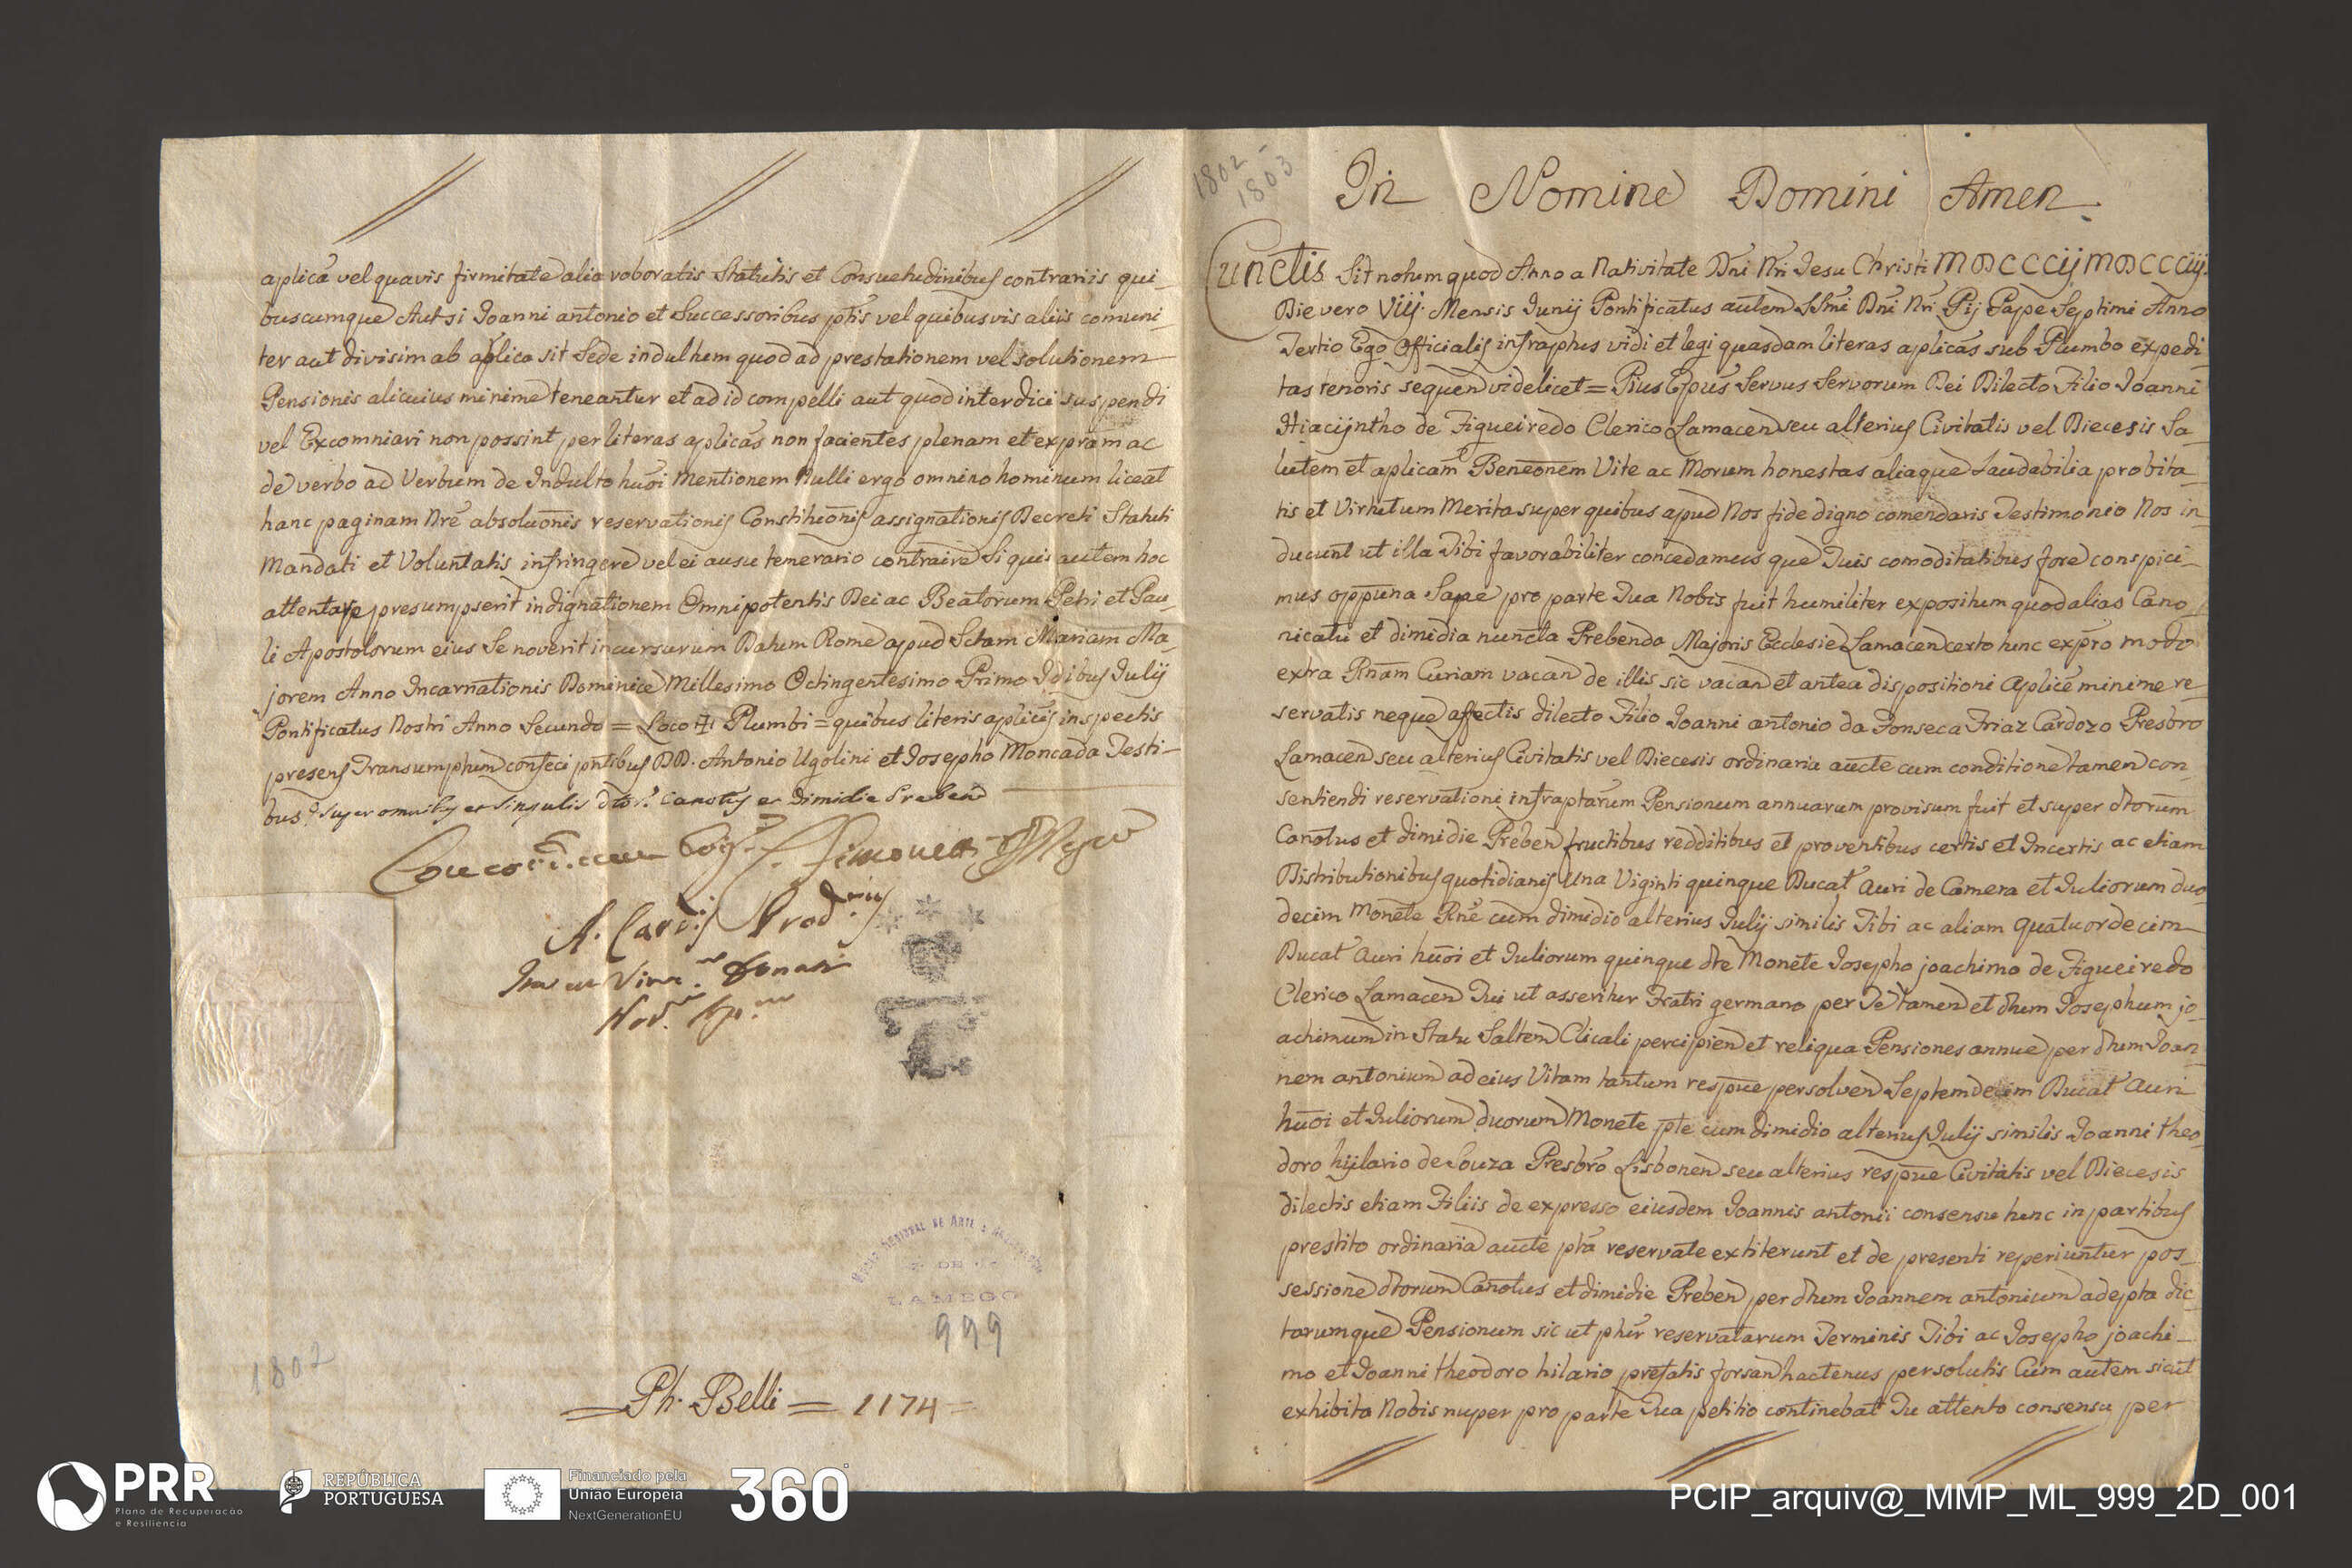 aplicā vel quavis firmitate alia roboratis Statutis et Consuetudinibus contrariis qui_
buscumque Aut si Joanni antonio et Successoribus pt̄is vel quibusvis aliis comuni_
ter aut divisim ab aplica sit Sede indultum quod ad prestationem vel solutionem
Pensionis alicuius minime teneantur et ad id compelli aut quod interdici suspendi
vel Excomniari non possint per literas aplicās non facientes plenam et exprām ac
de verbo ad Verbum de Indulto huōi mentionem Nulli ergo omnino hominum liceat
hanc paginam Nrē absoluōnis reservationis Constituōnis assignationis Decreti Statuti
Mandati et Voluntatis infringere vel ei ausu temerario contraire Si quis autem hoc
attentare presumpserit indignationem Omnipotentis Dei ac Beatorum Petri et Pau_
li Apostolorum eius Se noverit incursurum Datum Rome apud Sctam Mariam Ma_
jorem Anno Incarnationis Dominice Millesimo Octingentesimo Primo Idibus Julij
Pontificatus Nostri Anno Secundo = Loco ✠ Plumbi = quibus literis aplicīs inspectis
presens Transumptum confeci pntibus DD. Antonio Ugolini et Josepho Moncada Testi_
bus super omnibus et singulis dtor. Canotus et Dimidie Preben
A. Card.
1802
MUSEU REGIONAL DE ARTE E ARQUEOLOGIA
DE
LAMEGO
999
= Ph. Belli = 1174 =
1802 -
1803
In Nomine Domini Amen.
Cunctis Sit notum quod Anno a Nativitate Dn̄i Nr̄i Jesu Christi MDCCCij MDCCCiij.
Die vero Viij. Mensis Junij Pontificatus autem SSm̄i Dn̄i Nr̄i Pij Pape Septimi Anno
Tertio Ego Officialis infraptus vidi et legi quasdam literas aplicās sub Plumbo expedi
tas tenoris sequen videlicet = Pius Epūs Servus Servorum Dei Dilecto Filio Joanni
Hiacijntho de Figueiredo Clerico Lamacen seu alterius Civitatis vel Diecesis Sa_
lutem et aplicam Beneōnem Vite ac Morum honestas aliaque Laudabilia probita_
tis et Virtutum Merita super quibus apud Nos fide digno comendaris Testimonio Nos in_
ducunt ut illa Tibi favorabiliter concedamus que Tuis comoditatibus fore conspici_
mus oppūna Sane pro parte Tua Nobis fuit humiliter expositum quod alias Cano_
nicatu et dimidia nuncta Prebenda Majoris Ecclesie Lamacen certo tunc exprō modo
extra Rn̄am Curiam vacan de illis sic vacan et antea dispositioni aplicē minime re_
servatis neque affectis dilecto Filio Joanni antonio da Fonseca Friaz Cardozo Presbro
Lamacen seu alterius Civitatis vel Diecesis ordinaria aucte cum conditione tamen con_
sentiendi reservationi infraptarum Pensionum annuarum provisum fuit et super dtorum
Canotus et dimidie Preben fructibus redditibus et proventibus certis et Incertis ac etiam
Distributionibus quotidianis Una Viginti quinque Ducat auri de Camera et Juliorum duo
decim Monete Rn̄e cum dimidio alterius Julij similis Tibi ac aliam quatuordecim
Ducat Auri huōi et Juliorum quinque dte Monete Josepho joachimo de Figueiredo
Clerico Lamacen Tui ut asseritur Fratri germano per Te tamen et dtum Josephum jo_
achimum in Statu Saltem Clicali percipien et reliqua Pensiones annue per dtum Joan
nem antonium ad eius Vitam tantum respūe persolven Septemdecim Ducat Auri
huōi et Juliorum duorum Monete pte cum dimidio alterius Julij similis Joanni theo_
doro hijlario de Souza Presbrō Lisbonen seu alterius respūe Civitatis vel Diecesis
dilectis etiam Filiis de expresso eiusdem Joannis antonii consensu tunc in partibus
prestito ordinaria aucte ptā reservate extiterunt et de presenti reperiuntur pos_
sessione dtorum Canotus et dimidie Preben per dtum Joannem antonium adepta dic_
tarumque Pensionum sic ut ptur reservatarum Terminis Tibi ac Josepho joachi_
mo et Joanni theodoro hilario prefatis forsan hactenus persolutis Cum autem sicut
exhibita Nobis nuper pro parte Tua petitio continebat Tu attento consensu per
PRR
Plano de Recuperação
e Resiliência
REPÚBLICA
PORTUGUESA
Financiado pela
União Europeia
NextGenerationEU
360°
PCIP_arquiv@_MMP_ML_999_2D_001